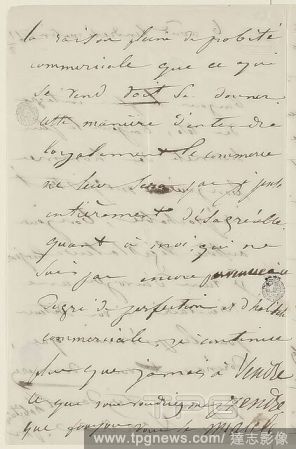 la raison pleine de probité
commerciale que ce qui
se vend doit se donner
cette manière d'entendre
loyalement le commerce
ne leur
entièrement désagréable
quant à moi, qui ne
suis pas encore parvenu à ce
degré de perfection et d'
commerciale, je continue
plus que jamais à Vendre
ce que vous voudrez me prendre
que
TPG
www.tpgnews.com/ 達志影像